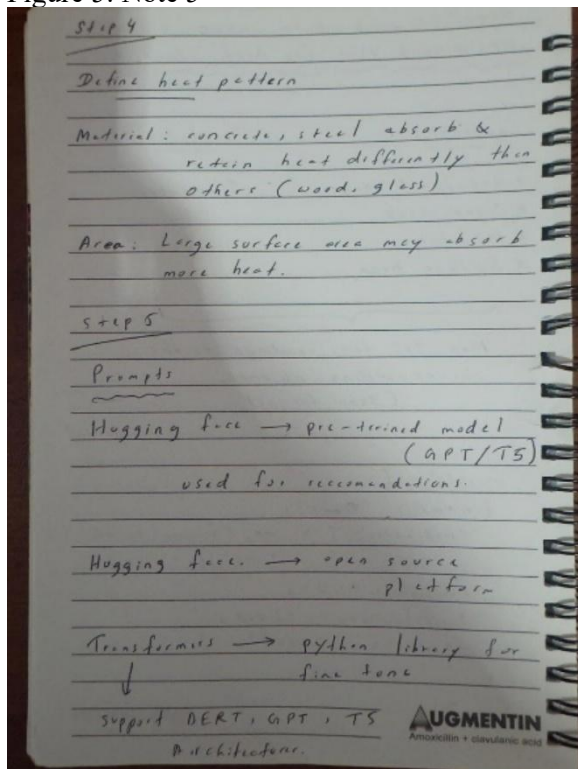 Figure 3: Note 3
Step 4
Define heat pattern
Material: concrete, steel absorb &
retain heat differently than
others (wood, glass)
Area: Large surface area may absorb
more heat.
Step 5
Prompts
Hugging face → pre-trained model
(GPT/T5)
used for reccomendations.
Hugging face. → open source
platform
Transformers → python library for
fine tone
↓
support BERT, GPT, T5
Architecture.
AUGMENTIN
Amoxicillin + clavulanic acid